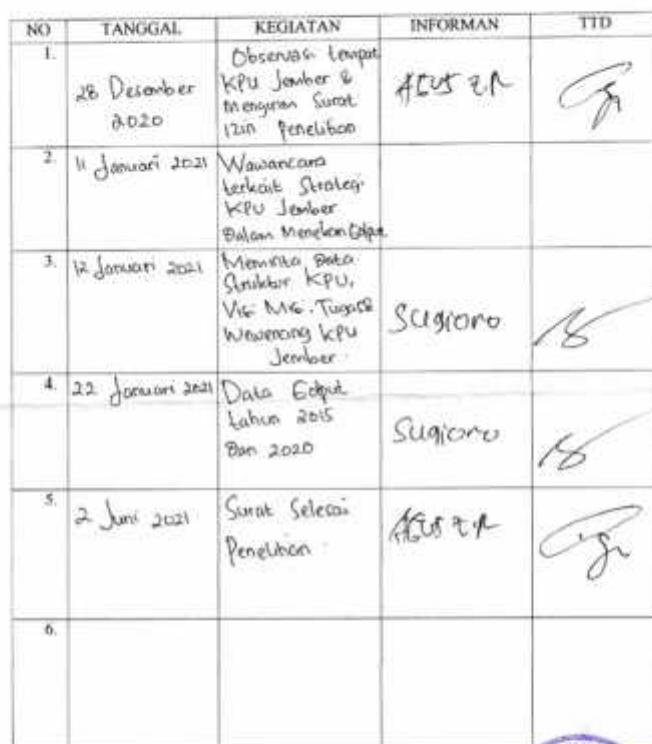 NO TANGGAL KEGIATAN INFORMAN TTD
1.
28 Desember
2020
Observasi tempat
KPU Jember &
Mengirim Surat
izin Penelitian
AGUS Z.R
2.
11 Januari 2021
Wawancara
terkait Strategi
KPU Jember
Dalam Menekan Golput
3.
12 Januari 2021
Meminta Data
Struktur KPU,
Visi Misi. Tugas &
Wewenang KPU
Jember.
Sugiono
4.
22 Januari 2021
Data Golput
tahun 2015
Dan 2020
Sugiono
5.
2 Juni 2021
Surat Selesai
Penelitian
AGUS Z.R
6.